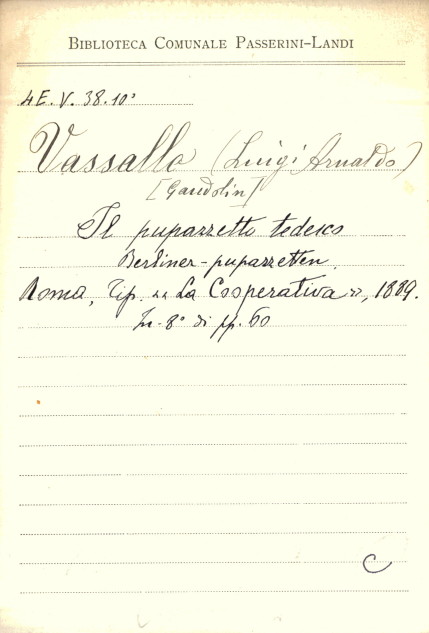 BIBLIOTECA COMUNALE PASSERINI-LANDI
4E. V. 38. 10°
Vassallo (Luigi Arnaldo)
[Gandolin]
Il pupazzetto tedesco
Berliner-pupazzetten.
Roma, Tip. «La Cooperativa», 1889.
In-8° di pp. 60
C